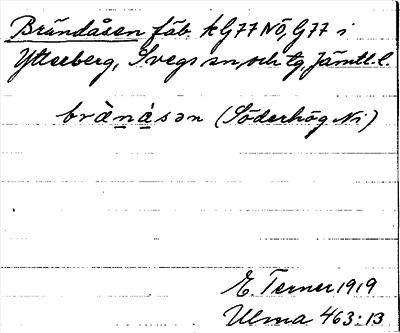 Brändåsen fäb. kG77NÖ, G77 i
Ytterberg, Svegs sn, och tg, Jämtl. l.
brä̀ná̠sən (Söderhög Ni)
E. Terner 1919
Ulma 463:13